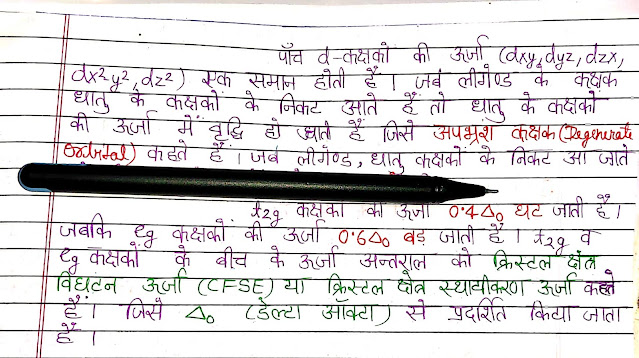 पाँच d-कक्षकों की ऊर्जा (dxy, dyz, dzx,
dx²y², dz²) एक समान होती है । जब लीगेण्ड के कक्षक
धातु के कक्षकों के निकट आते हैं तो धातु के कक्षकों
की ऊर्जा में वृद्धि हो जाती है जिसे अपभ्रंश कक्षक (Degenerate
Orbital) कहते हैं । जब लीगेण्ड, धातु कक्षकों के निकट आ जाते
t2g कक्षकों की ऊर्जा 0.4Δ₀ घट जाती है ।
जबकि eg कक्षकों की ऊर्जा 0.6Δ₀ बड़ जाती है । t2g व
eg कक्षकों के बीच के ऊर्जा अन्तराल को क्रिस्टल क्षेत्र
विघटन ऊर्जा (CFSE) या क्रिस्टल क्षेत्र स्थायीकरण ऊर्जा कहते
हैं । जिसे Δ₀ (डेल्टा ऑक्टा) से प्रदर्शित किया जाता
है ।